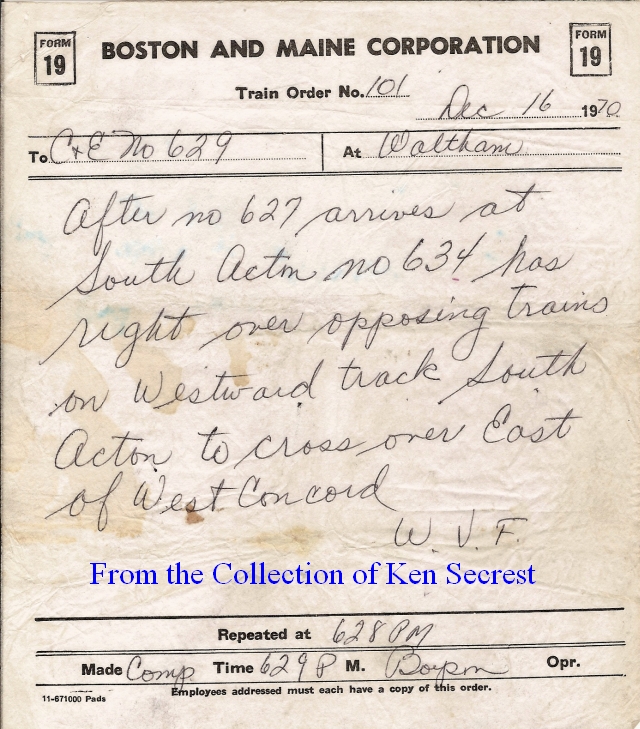 FORM 19
BOSTON AND MAINE CORPORATION
FORM 19
Train Order No. 101
Dec 16 1970
To C+E No 629 At Waltham
After no 627 arrives at
South Acton no 634 has
right over opposing trains
on Westward track South
Acton to cross over East
of West Concord
W. V. F.
From the Collection of Ken Secrest
Repeated at 628 PM
Made Comp Time 629 P M. Opr.
11-671000 Pads
Employees addressed must each have a copy of this order.